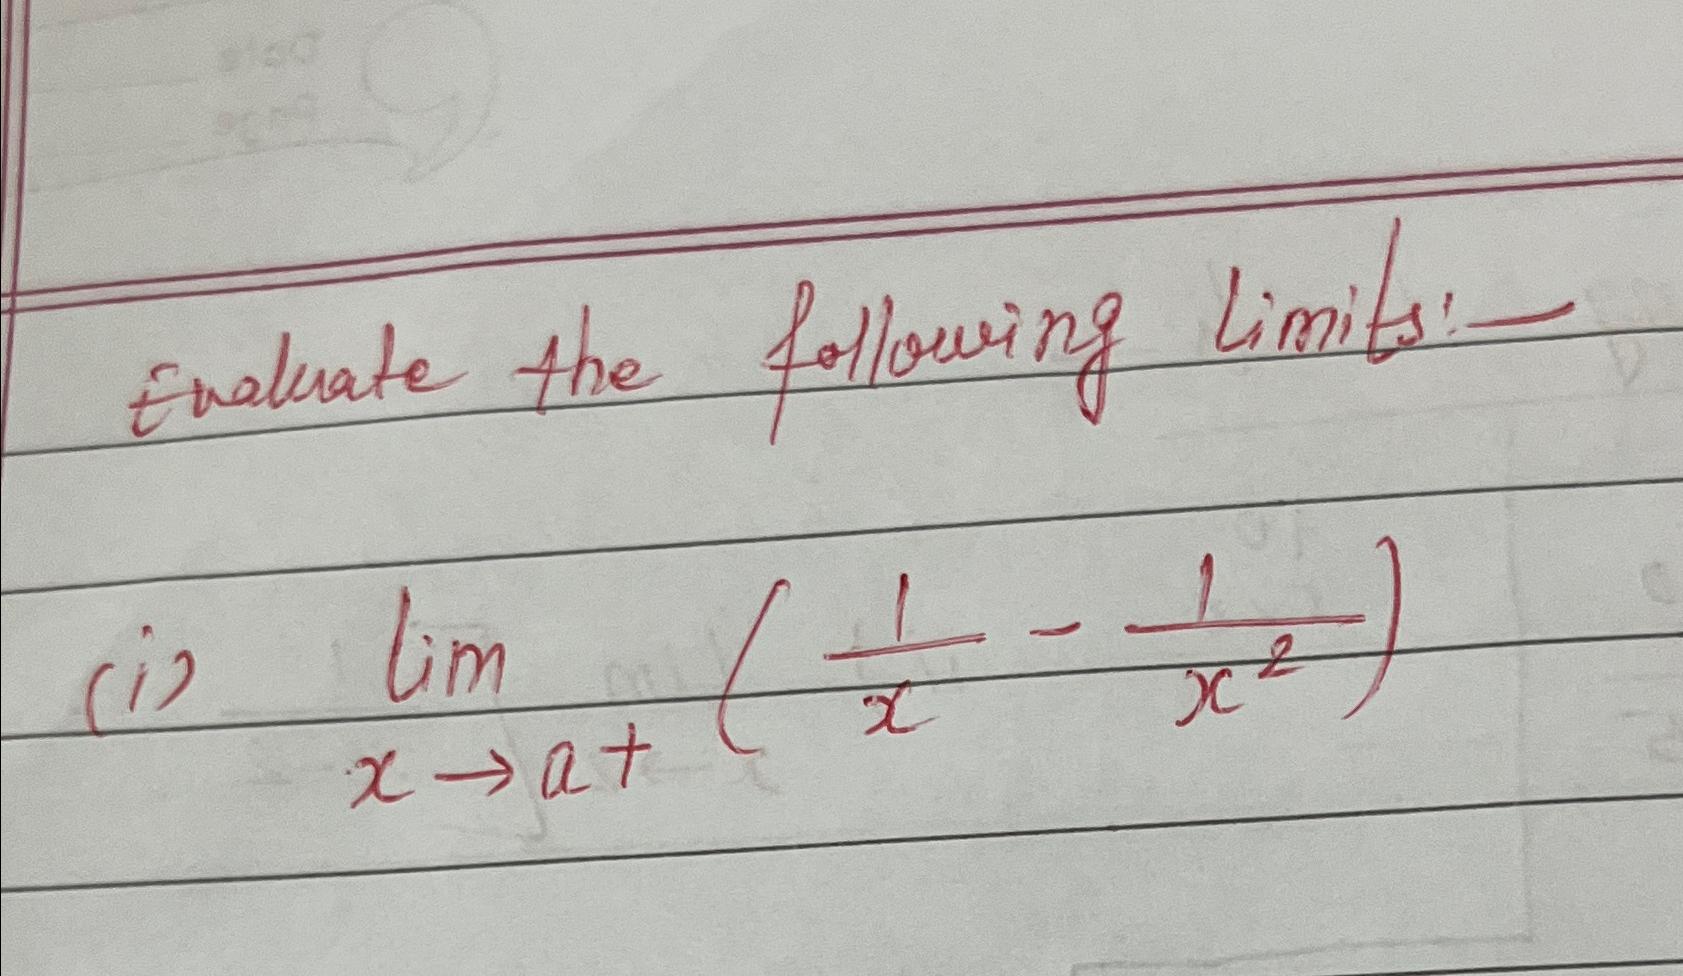 Evaluate the following limits:—
(i) lim x→a+ (1/x - 1/x²)